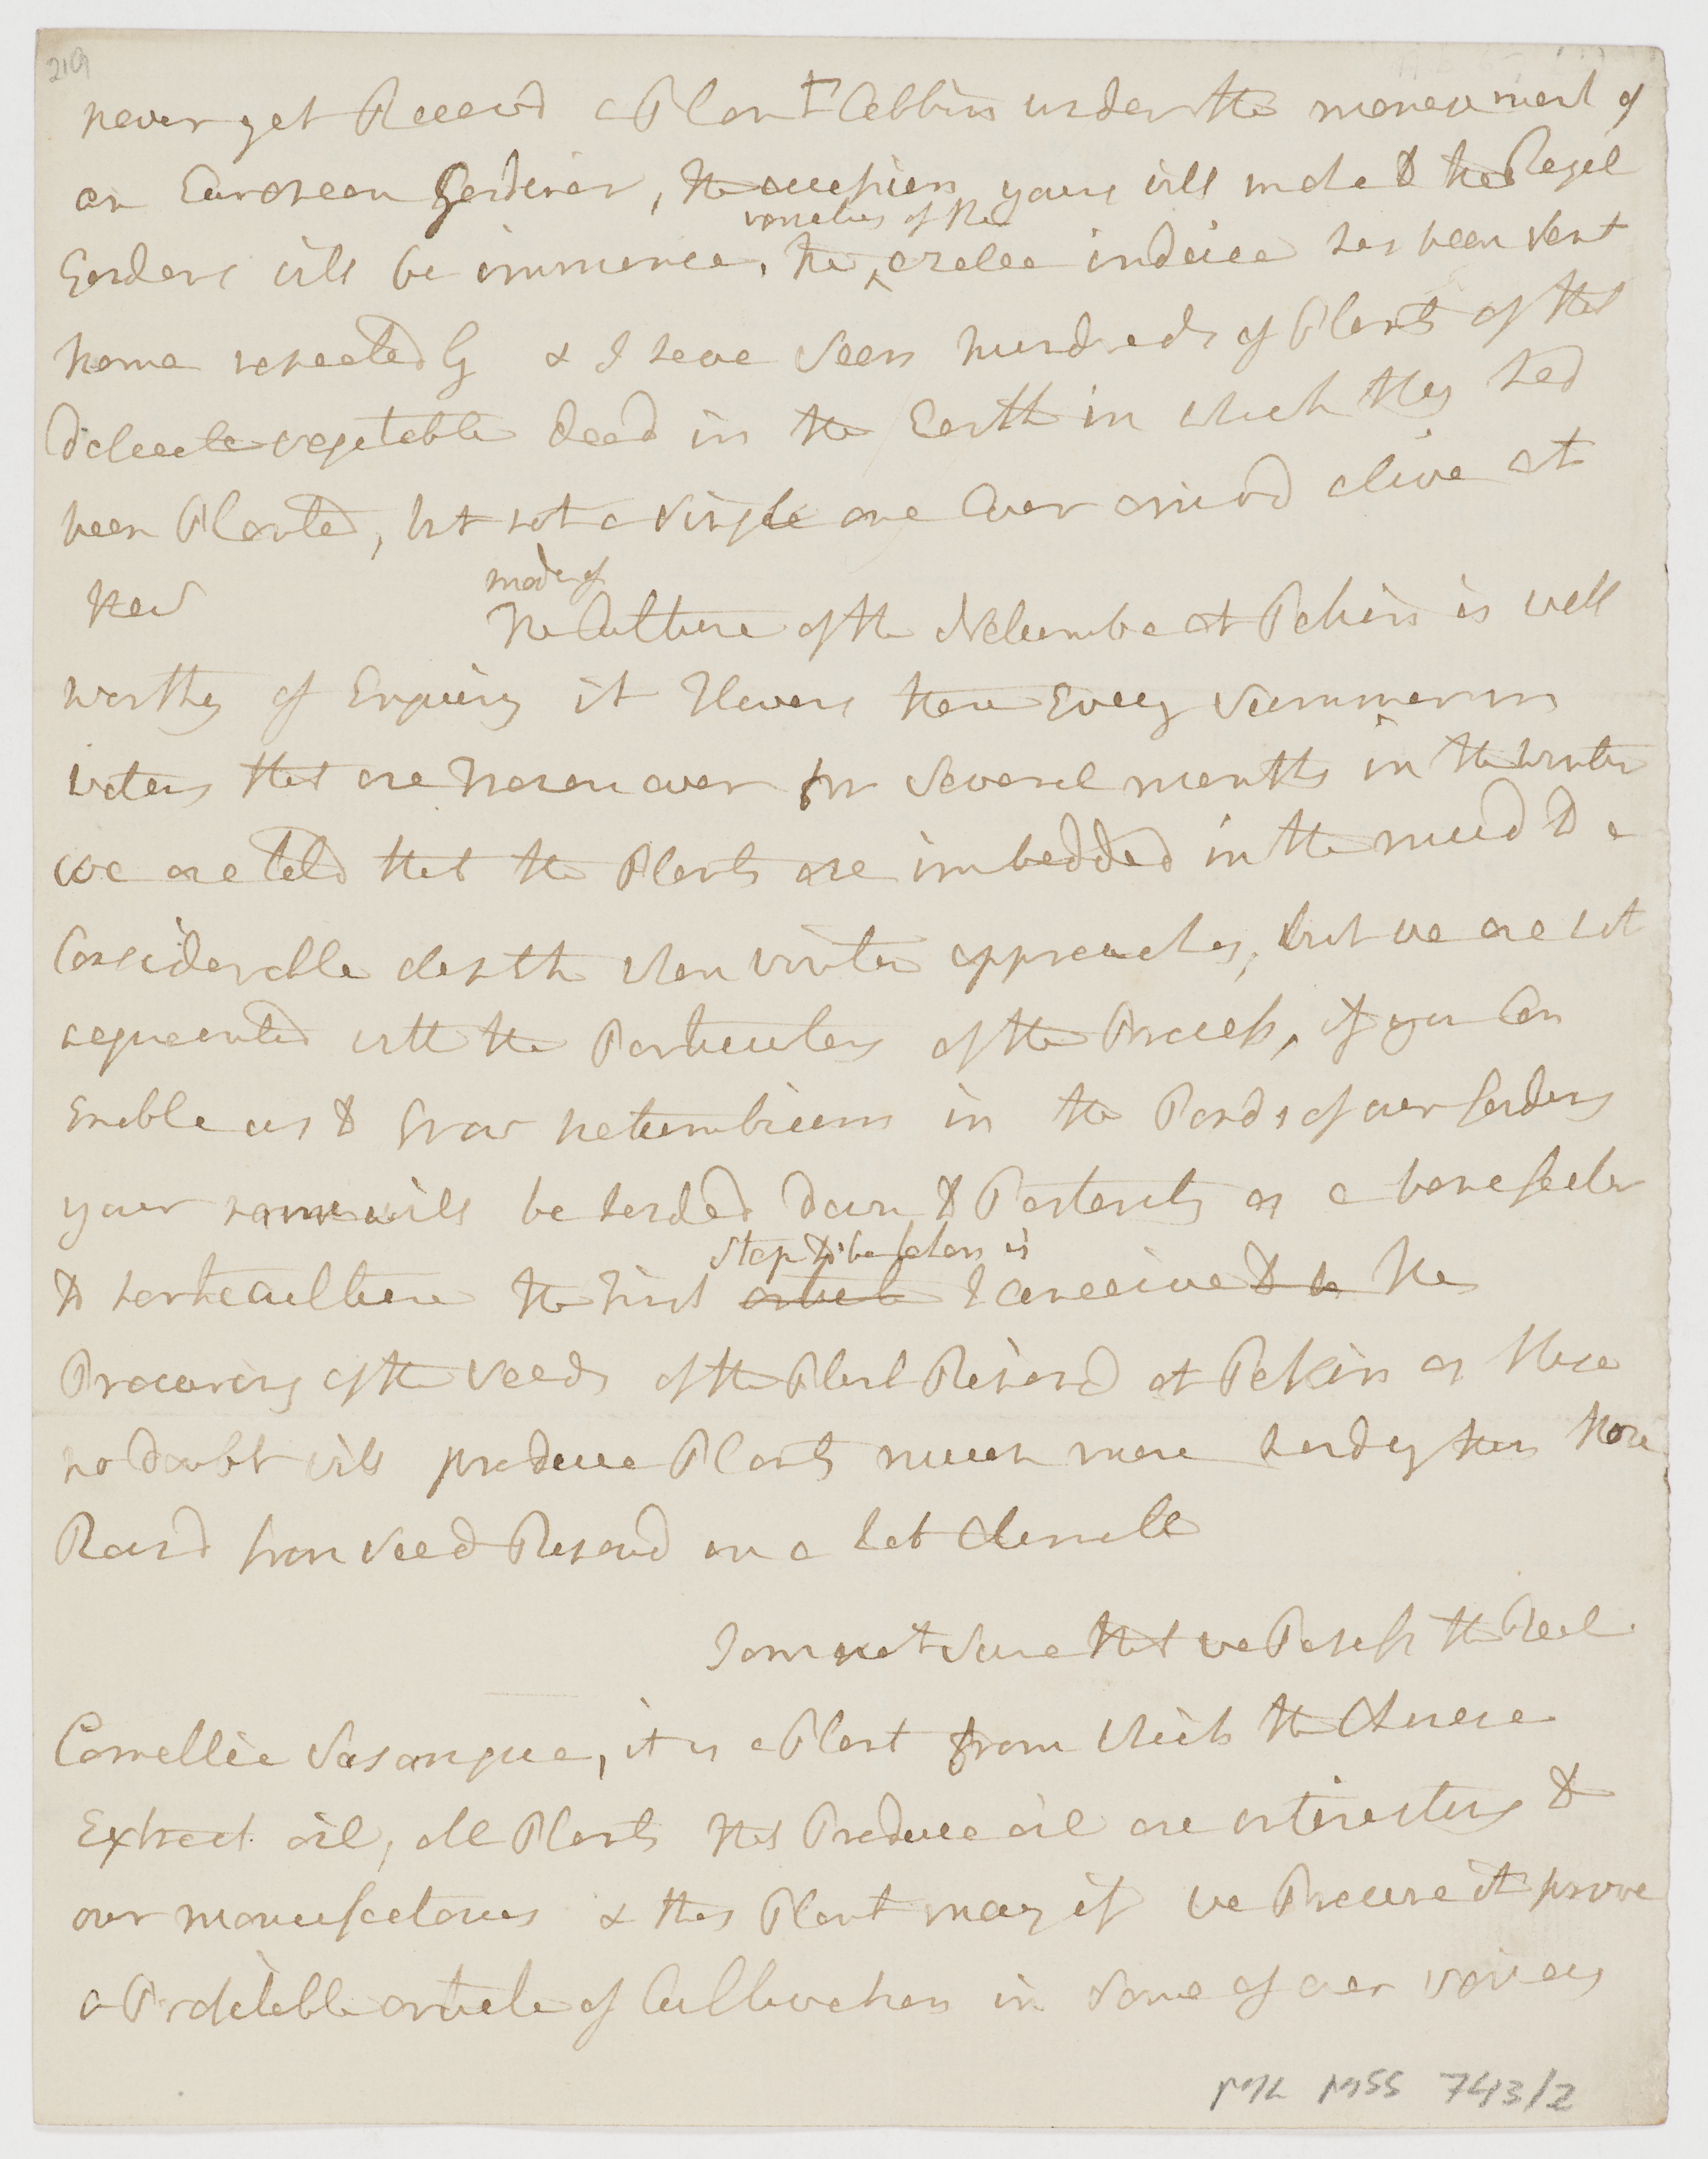 219
never yet Receivd a Plant Cabbin under the management of
an European Gardiner, the accession yours will make to the Royal
Gardens will be immense, the
varieties of the
azalea indica has been sent
home repeatedly & I have seen hundreds of Plants of that
delicate vegetable dead in the Earth in which they had
been Planted, but not a single one Ever arrivd alive at
Kew
mode of
The Culture of the Nelumbo at Pekin is well
worthy of Enquiry it Flowers there Every summer in
waters that are Frozen over for several months in the winter
we are told that the Plants are imbedded in the mud to a
Considerable depth when winter approaches, but we are not
acquainted with the Particulars of the Process, if you Can
Enable us to Grow nelumbiums in the Ponds of our Gardens
your name will be handed down to Posterity as a benefactor
to horticulture the First
step to be taken is
article I conceive to be the
Procuring of the seeds of the Plant Ripend at Pekin as these
no doubt will produce Plants much more hardy than those
Raisd from seed Ripend in a hot Climate
I am not sure that we Possess the Real
Camellia Sasanqua, it is a Plant from which the Chinese
Extract oil, all Plants that Produce oil are interesting to
our manufactories & this Plant may if we Procure it prove
a Profitable article of Cultivation in some of our
ML MSS 743/2